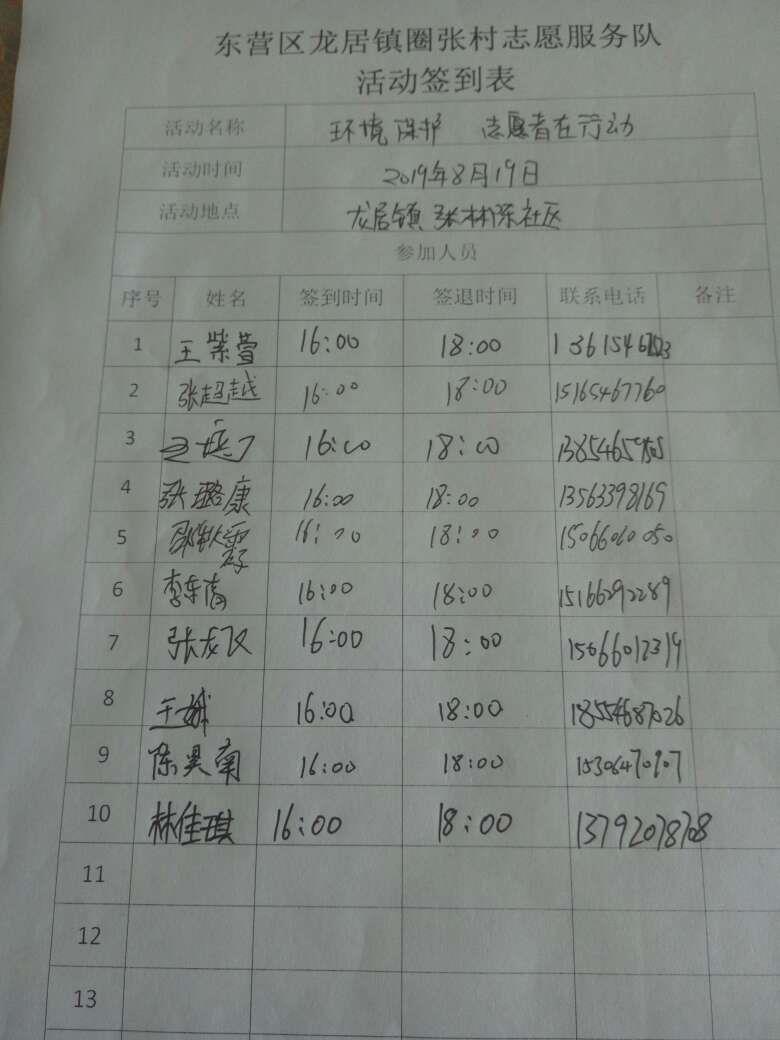 东营区龙居镇圈张村志愿服务队
活动签到表
活动名称 环境保护 志愿者在行动
活动时间 2019年8月19日
活动地点 龙居镇 张林陈社区
参加人员
序号 姓名 签到时间 签退时间 联系电话 备注
1 王紫萱 16:00 18:00
2 张超越 16:00 18:00 15165467760
3 16:00 18:00
4 张璐康 16:00 18:00 13563398169
5 16:00 18:00 15066060050
6 16:00 18:00 15166292289
7 张龙飞 16:00 18:00 15066012319
8 16:00 18:00 18554687026
9 陈昊南 16:00 18:00 15306470907
10 林佳琪 16:00 18:00 13792078708
11
12
13